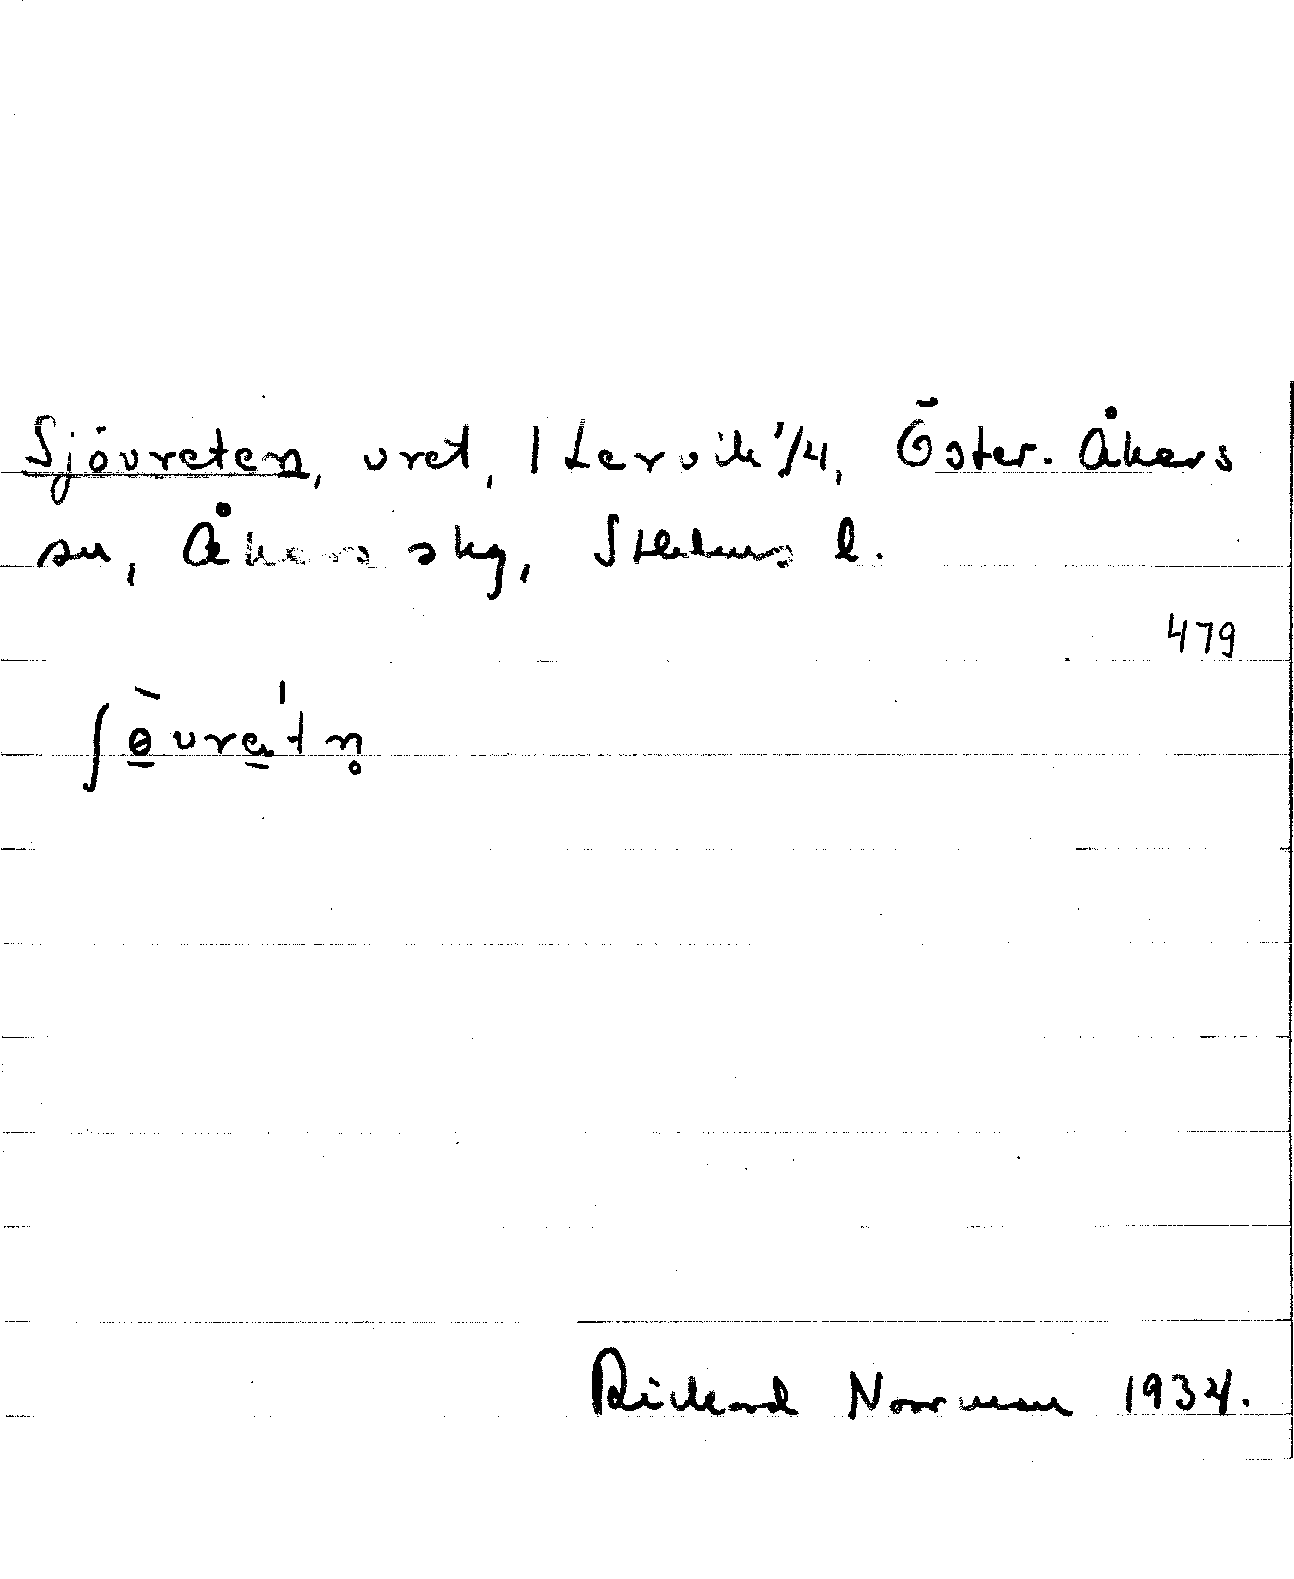 Sjövreten, vret, 1 Lervik 1/4, Öster-Åkers
sn, Åkers skg, Sthlms l.
479
ʃɵ̱̀vrɛ̱ˈtn̥
Rickard Norrman 1934.